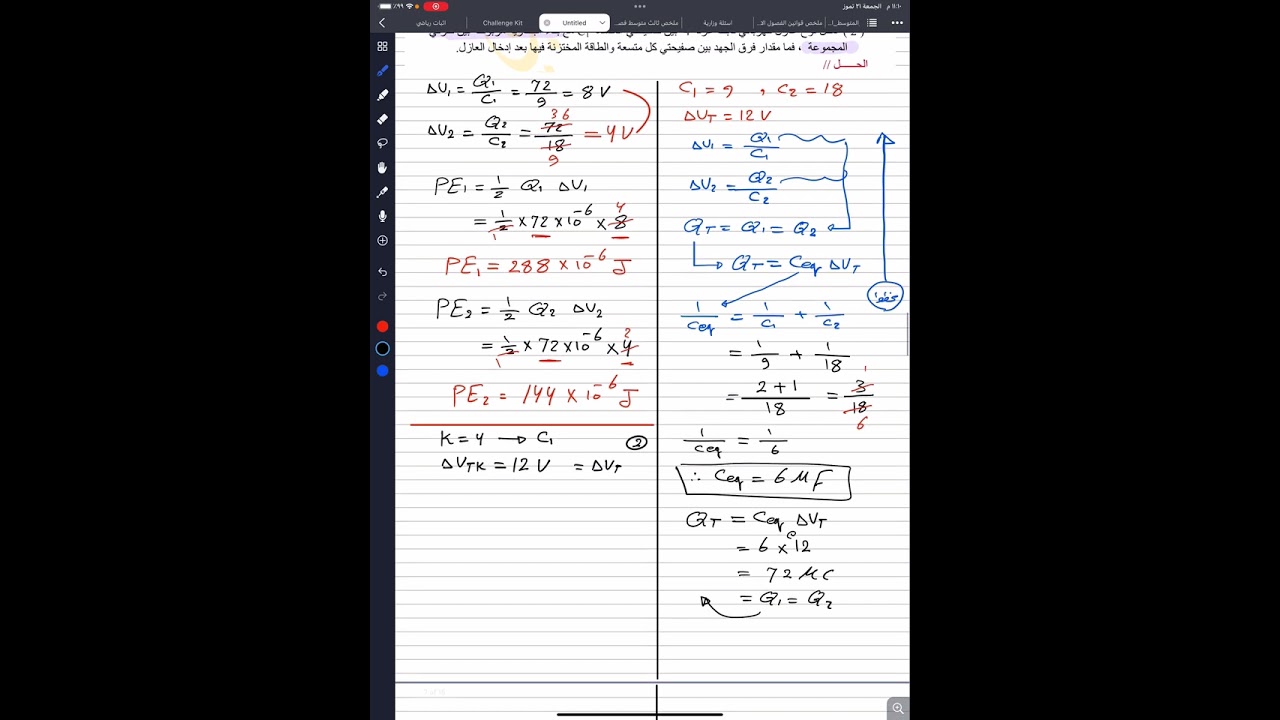 ١١:١٠ م الجمعة ٣١ تموز
٩٩٪
اثبات رياضي
Challenge Kit
Untitled
ملخص ثالث متوسط فص...
اسئلة وزارية
ملخص قوانين الفصول الا...
المتوسط_ا...
المجموعة ، فما مقدار فرق الجهد بين صفيحتي كل متسعة والطاقة المختزنة فيها بعد إدخال العازل.
الحــل //
C₁ = 9 , C₂ = 18
ΔV_T = 12 V
ΔV₁ = Q₁/C₁
ΔV₂ = Q₂/C₂
Q_T = Q₁ = Q₂
Q_T = Ceq ΔV_T
1/Ceq = 1/C₁ + 1/C₂
= 1/9 + 1/18
= (2+1)/18 = 3/18
1
6
1/Ceq = 1/6
∴ Ceq = 6 μF
Q_T = Ceq ΔV_T
= 6 × 12
= 72 μC
= Q₁ = Q₂
ΔV₁ = Q₁/C₁ = 72/9 = 8 V
ΔV₂ = Q₂/C₂ = 72/18 = 4V
36
9
PE₁ = 1/2 Q₁ ΔV₁
= 1/2 × 72 × 10⁻⁶ × 8
1
4
PE₁ = 288 × 10⁻⁶ J
PE₂ = 1/2 Q₂ ΔV₂
= 1/2 × 72 × 10⁻⁶ × 4
1
2
PE₂ = 144 × 10⁻⁶ J
K = 4 → C₁
②
ΔV_TK = 12 V = ΔV_T